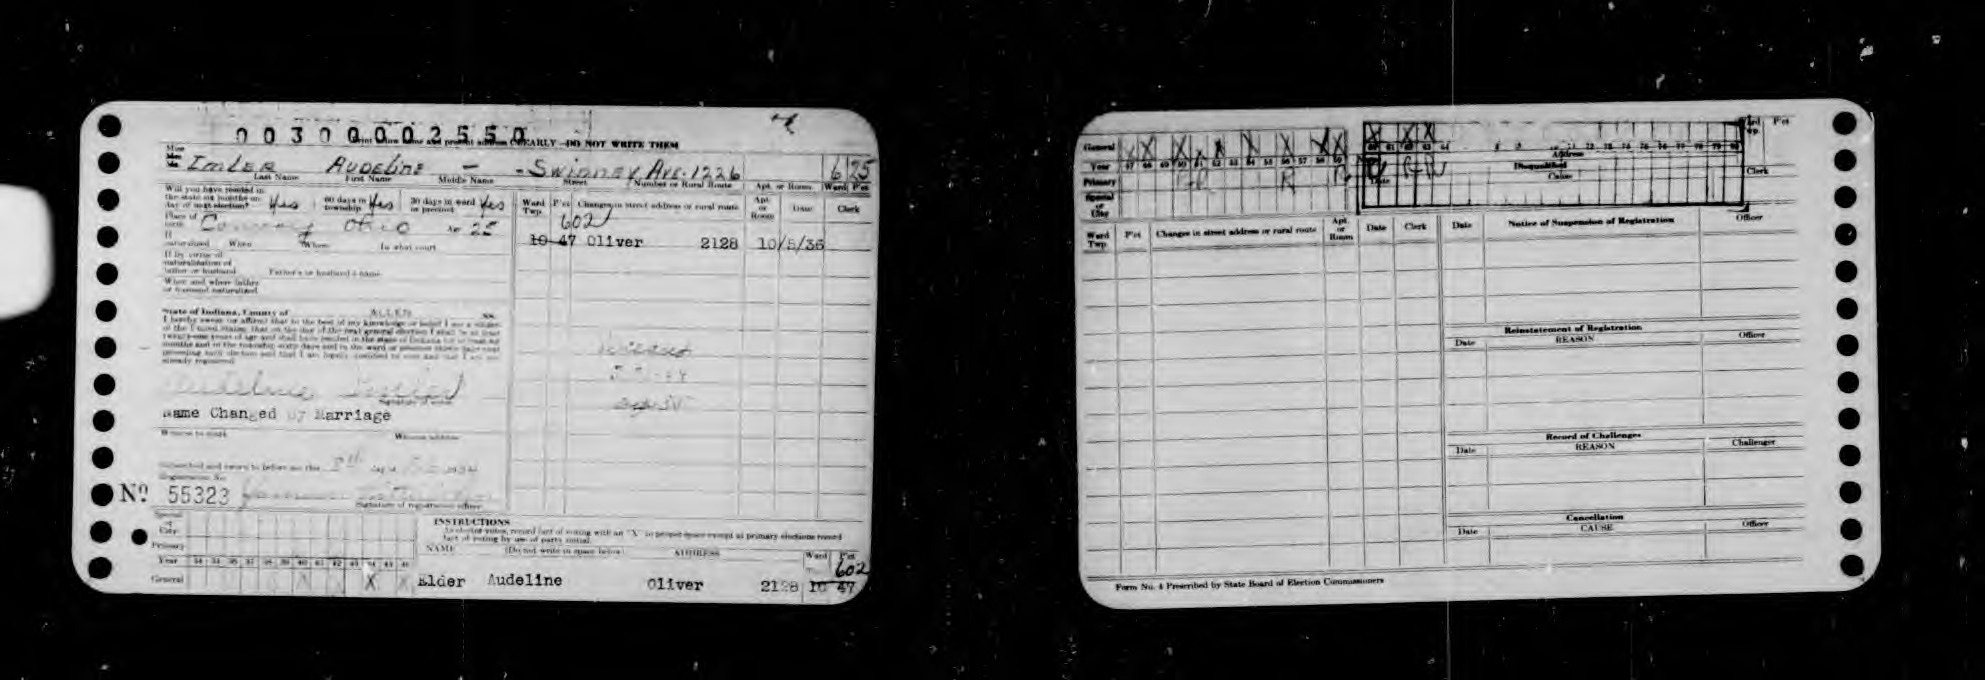 00300002550
Print below name and present address CLEARLY—DO NOT WRITE THEM
Miss
Mrs. IMLER AUDELINE — - SWINNEY AVE. 1226 6 25
Last Name First Name Middle Name Street Number or Rural Route Apt. or Room Ward P'ct
Will you have resided in the state six months on day of next election? Yes 60 days in township Yes 30 days in ward or precinct Yes
Place of birth Ohio Age 25
If naturalized When Where In what court
If by virtue of naturalization of father or husband Father's or husband's name
When and where father or husband naturalized
Ward Twp. P'ct Changes in street address or rural route Apt. or Room Date Clerk
602
10 47 Oliver 2128 10/5/36
State of Indiana, County of ALLEN ss.
I hereby swear or affirm that to the best of my knowledge or belief I am a citizen
of the United States, that on the day of the next general election I shall be at least
twenty-one years of age and shall have resided in the state of Indiana for at least six
months and in the township sixty days and in the ward or precinct thirty days next
preceding such election and that I am legally qualified to vote and that I am not
already registered.
Name Changed by Marriage
Witness to mark Witness address
Subscribed and sworn to before me this 8th day of
Registration No.
Nº 55323
Signature of registration officer
Special or City
Primary
Year 34 35 36 37 38 39 40 41 42 43 44 45 46
General X X
INSTRUCTIONS
As elector votes, record fact of voting with an "X" in proper space except at primary elections record
fact of voting by use of party initial.
NAME (Do not write in space below) ADDRESS Ward Twp. P'ct
602
Elder Audeline Oliver 2128 10 47
General X X X X X X X X X X X
Year 47 48 49 50 51 52 53 54 55 56 57 58 59 60 61 62 63 64
Primary R R
Special or City
Address
Disqualified
Date Cause Clerk
Ward Twp. P'ct
Ward Twp. P'ct Changes in street address or rural route Apt. or Room Date Clerk
Date Notice of Suspension of Registration Officer
Reinstatement of Registration
Date REASON Officer
Record of Challenges
Date REASON Challenger
Cancellation
Date CAUSE Officer
Form No. 4 Prescribed by State Board of Election Commissioners